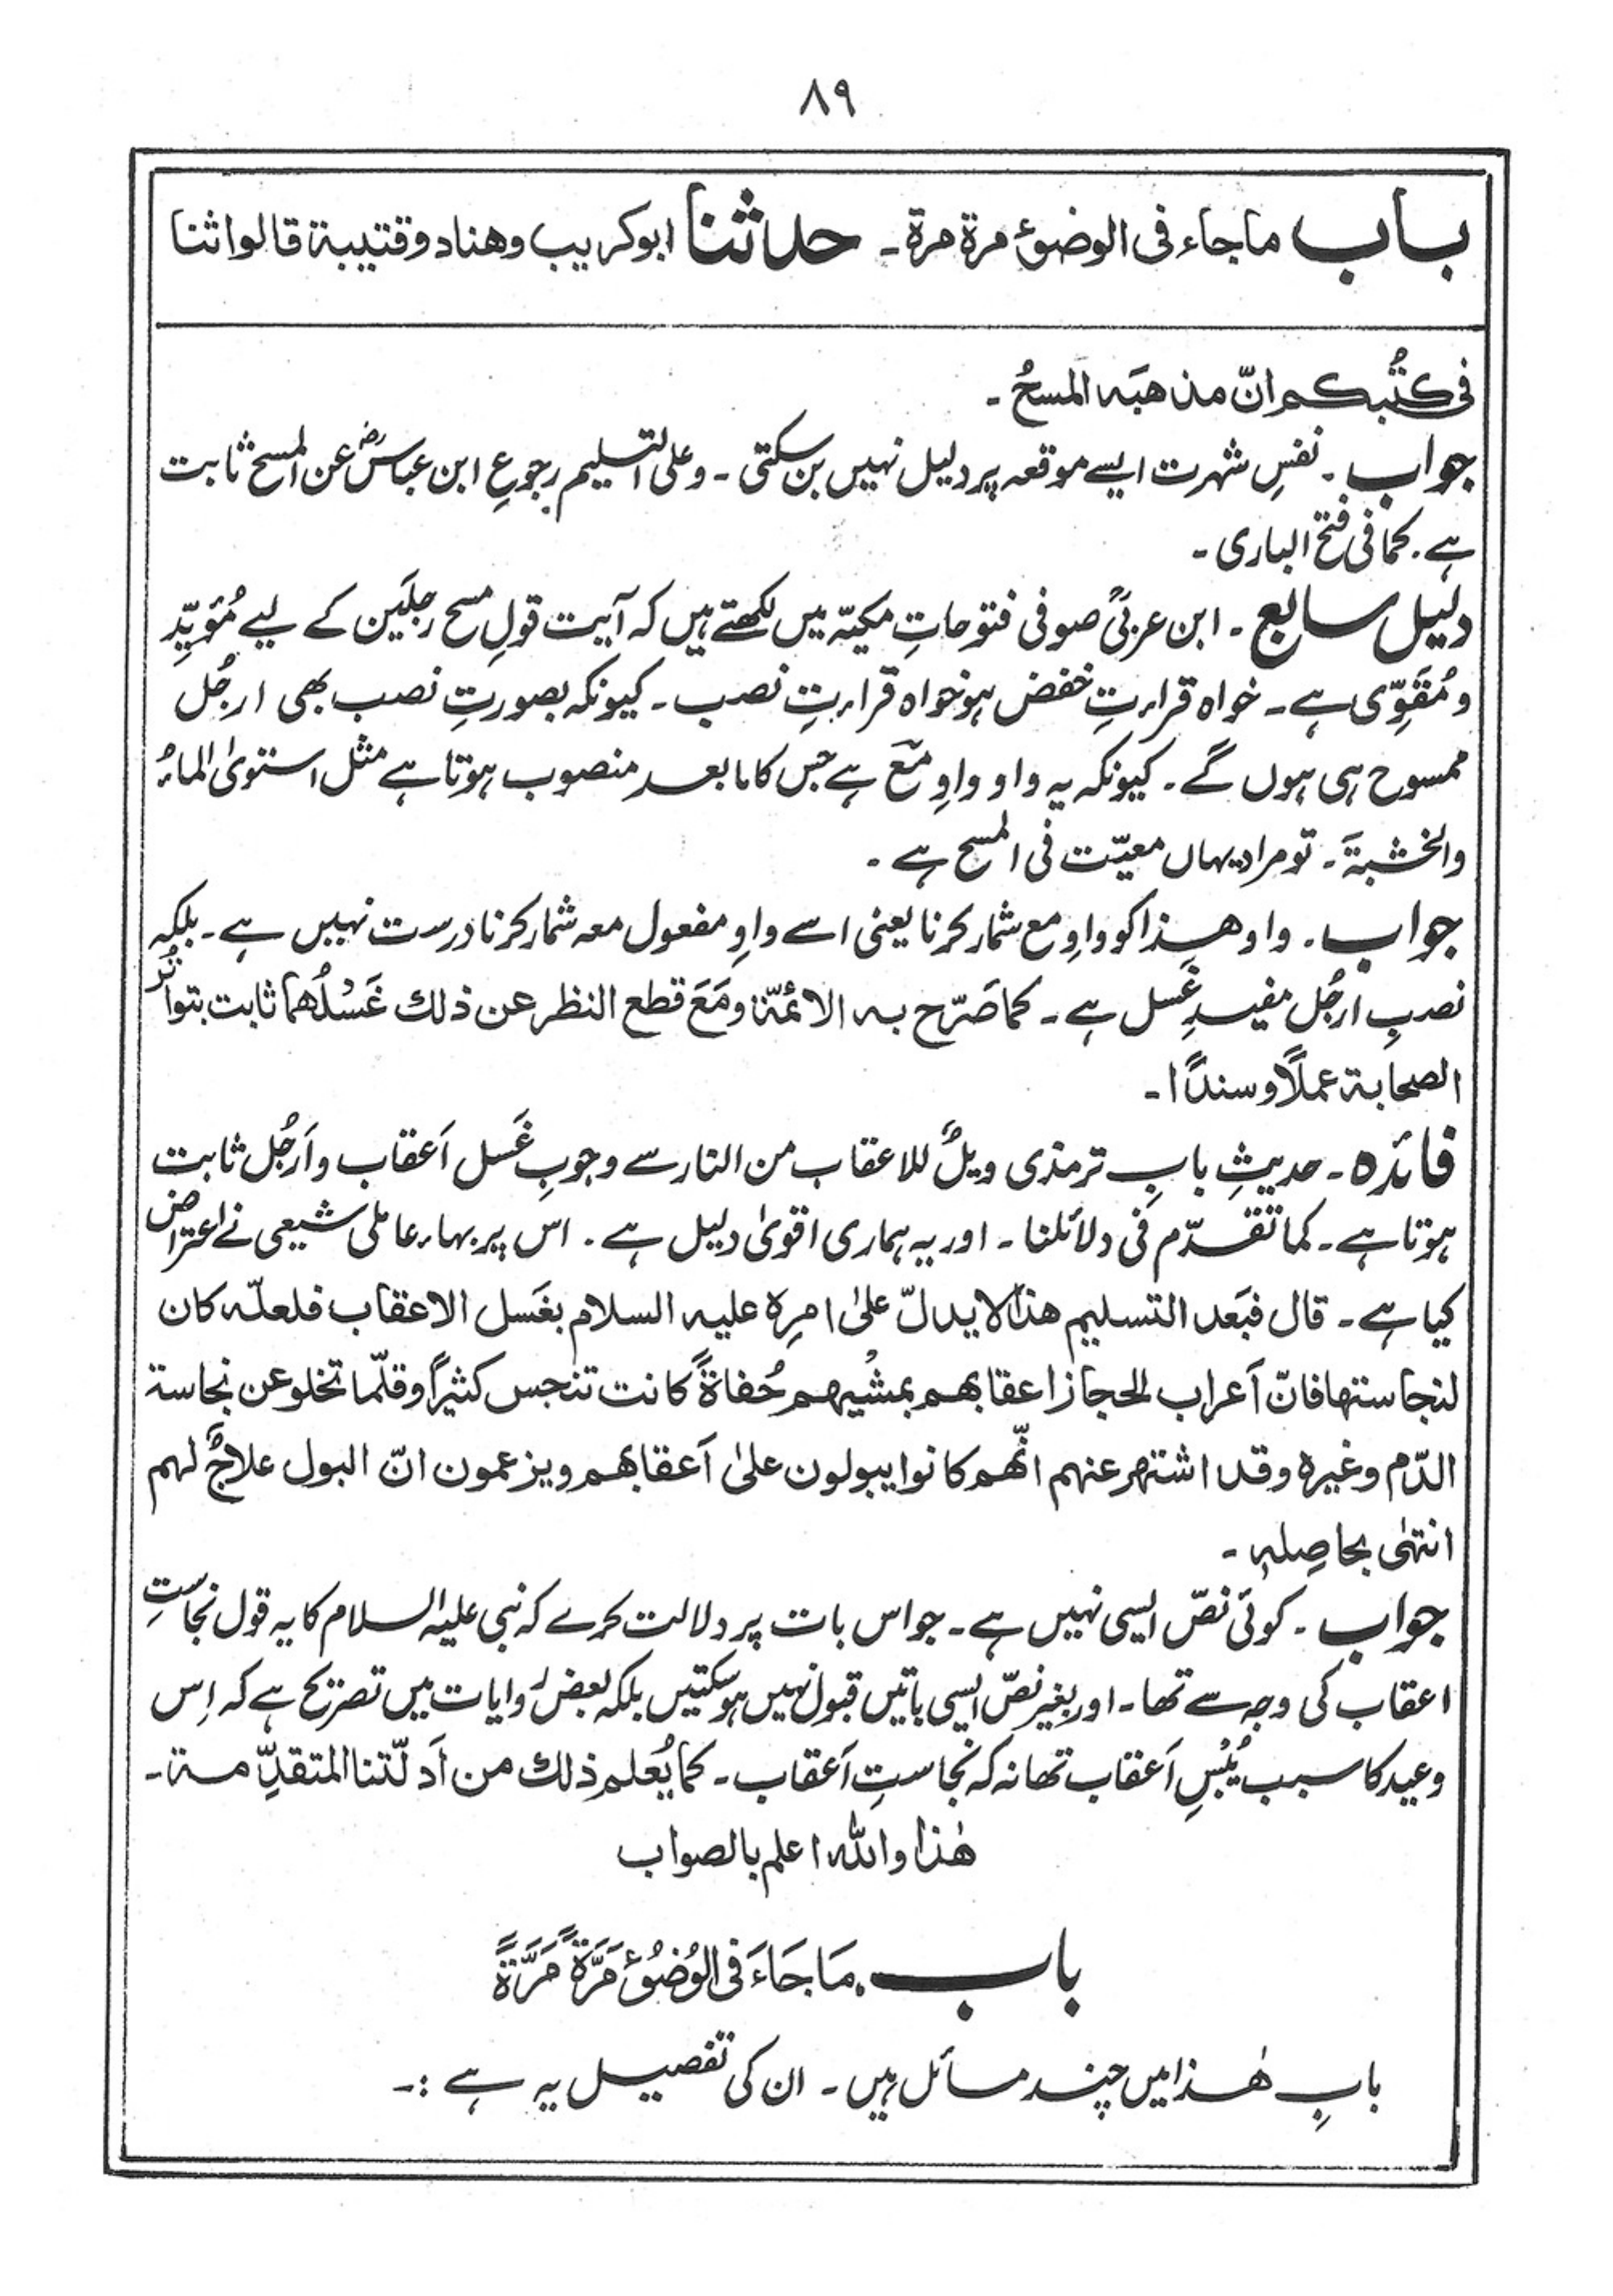 ۸۹
باب ماجاء فی الوضوئ مرة مرة ۔ حدثنا ابوکریب وهناد وقتیبة قالوا ثنا
فی کتُبکم انّ مذهبَه المسحُ ۔
جواب ۔ نفسِ شہرت ایسے موقعہ پر دلیل نہیں بن سکتی ۔ وعلی التسلیم رجوعِ ابن عباسؓ عن المسح ثابت
ہے ۔ کما فی فتح الباری ۔
دلیل سابع ۔ ابن عربیؒ صوفی فتوحاتِ مکیّہ میں لکھتے ہیں کہ آیت قولِ مسح رجلَین کے لیے مُؤیِّد
و مُقَوِّی ہے ۔ خواہ قراءتِ خفض ہو خواہ قراءتِ نصب ۔ کیونکہ بصورتِ نصب بھی ارجُل
ممسوح ہی ہوں گے ۔ کیونکہ یہ واو واوِ مَعَ ہے جس کا مابعد منصوب ہوتا ہے مثل استویٰ الماءُ
والخشبةَ ۔ تو مراد یہاں معیّت فی المسح ہے ۔
جواب ۔ واو هذا کو واوِ مع شمار کرنا یعنی اسے واوِ مفعول معہ شمار کرنا درست نہیں ہے ۔ بلکہ
نصبِ ارجُل مفیدِ غَسل ہے ۔ کما صَرّح به الائمّة ومَعَ قطع النظر عن ذلك غَسْلُهما ثابت بتواتُر
الصحابة عملًا وسندًا ۔
فائدہ ۔ حدیثِ بابِ ترمذی ویلٌ للاعقاب من النار سے وجوبِ غَسل اَعقاب و اَرجُل ثابت
ہوتا ہے ۔ کما تقدّم فی دلائلنا ۔ اور یہ ہماری اقویٰ دلیل ہے ۔ اس پر بہاء عاملی شیعی نے اعتراض
کیا ہے ۔ قال فبَعد التسلیم هذا لا یدلّ علیٰ امرِه علیه السلام بغَسل الاعقاب فلعلّه کان
لنجاستها فانّ اَعراب الحجاز اعقابهم بمشْیِهم حُفاةً کانت تنجس کثیرًا وقلّما تخلو عن نجاسة
الدّم وغیره وقد اشتهر عنهم انّهم کانوا یبولون علیٰ اَعقابهم ویزعمون انّ البول علاجٌ لهم
انتهٰی بحاصِله ۔
جواب ۔ کوئی نصّ ایسی نہیں ہے ۔ جو اس بات پر دلالت کرے کہ نبی علیہ السلام کا یہ قول نجاستِ
اعقاب کی وجہ سے تھا ۔ اور بغیر نصّ ایسی باتیں قبول نہیں ہوسکتیں بلکہ بعض روایات میں تصریح ہے کہ اِس
وعید کا سبب یُبْسِ اَعقاب تھا نہ کہ نجاستِ اَعقاب ۔ کما یُعلم ذلك من اَدلّتنا المتقدِّمة ۔
هٰذا والله اعلم بالصواب
باب ۔ مَاجَاءَ فی الوُضُوئِ مَرَّةً مَرَّةً
بابِ هٰذا میں چند مسائل ہیں ۔ ان کی تفصیل یہ ہے :۔